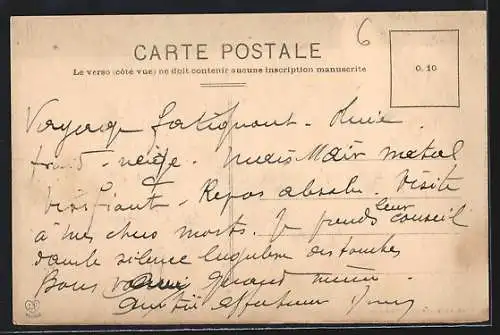 6
CARTE POSTALE
Le verso (côté vue) ne doit contenir aucune inscription manuscrite
0.10
Voyage fatigant - Pluie
froid - neige. Mais l'air natal
vivifiant - Repos absolu. Visite
à mes chers morts. Je prends leur conseil
dans le silence lugubre des tombes
Bons
amitié affectueuse